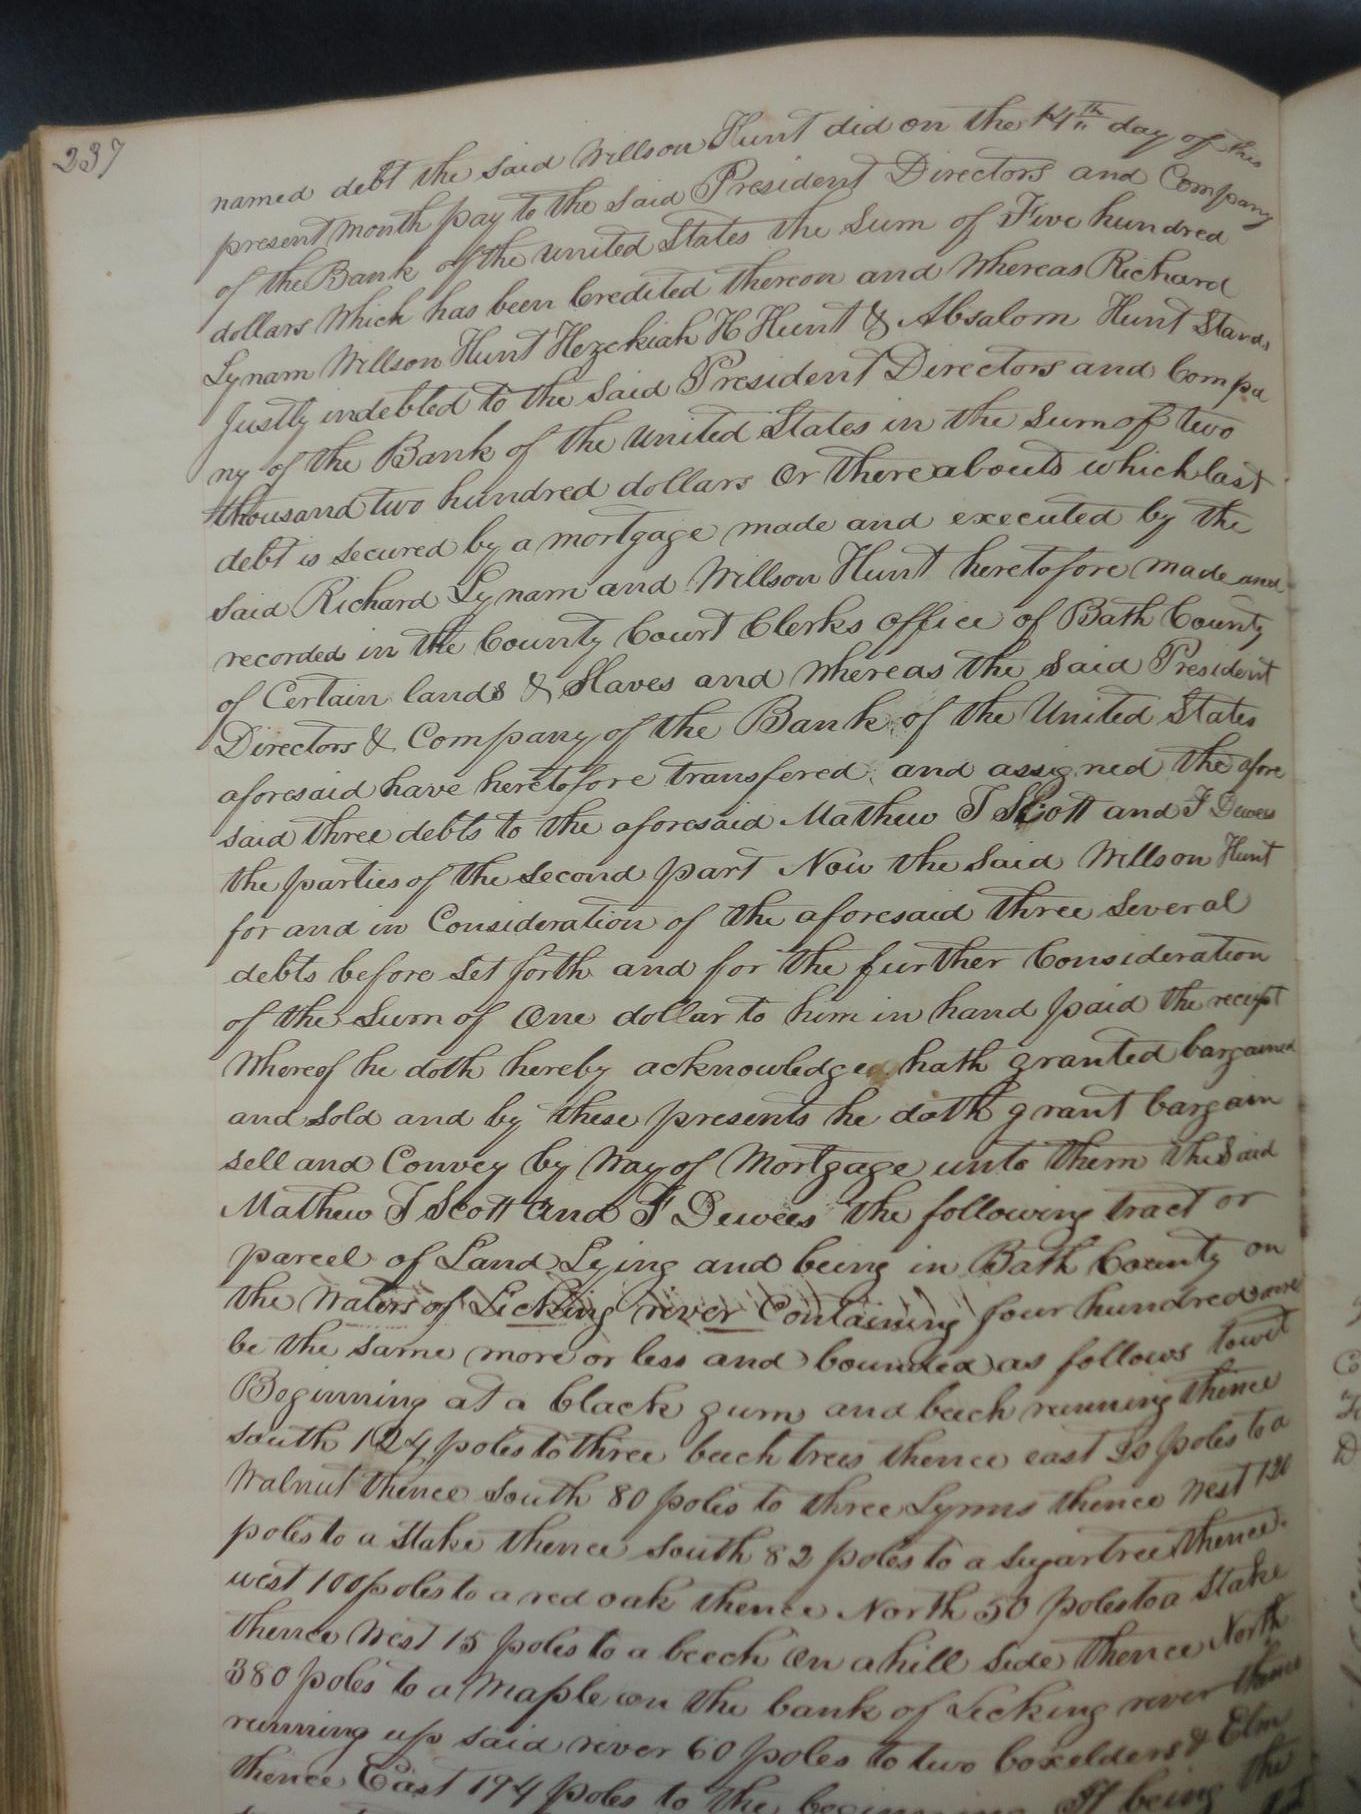 237
named debt the said Willson Hunt did on the 14th day of this
present month pay to the said President Directors and Company
of the Bank of the united States the Sum of Five hundred
dollars Which has been Credited thereon and Whereas Richard
Lynam Willson Hunt Hezekiah H Hunt & Absalom Hunt Stands
Justly indebted to the said President Directors and Compa
ny of the Bank of the United States in the Sum of two
thousand two hundred dollars Or thereabouts which last
debt is secured by a mortgage made and executed by the
said Richard Lynam and Willson Hunt heretofore made and
recorded in the County Court Clerks office of Bath County
of Certain lands & Slaves and Whereas the said President
Directors & Company of the Bank of the United States
aforesaid have heretofore transfered and assigned the afore
said three debts to the aforesaid Mathew T Scott and F Dewees
the parties of the second part Now the said Willson Hunt
for and in Consideration of the aforesaid three several
debts before set forth and for the further Consideration
of the Sum of One dollar to him in hand paid the recipt
Whereof he doth hereby acknowledge hath granted bargained
and sold and by these presents he doth grant bargain
sell and Convey by Way of Mortgage unto them the said
Mathew T Scott and F Dewees the following tract or
parcel of Land Lying and being in Bath County on
the Waters of Licking river Containing four hundred acres
be the same more or less and bounded as follows towit
Beginning at a black gum and beech running thence
south 124 poles to three beech trees thence east 20 poles to a
Walnut thence south 80 poles to three Lynns thence West 120
poles to a stake thence south 82 poles to a sugartree thence
west 100 poles to a red oak thence North 50 poles to a Stake
thence West 15 poles to a beech On a hill side thence North
380 poles to a Maple on the bank of Licking river thence
running up said river 60 poles to two boxelders & Elm
thence East 194 poles to the beginning It being the